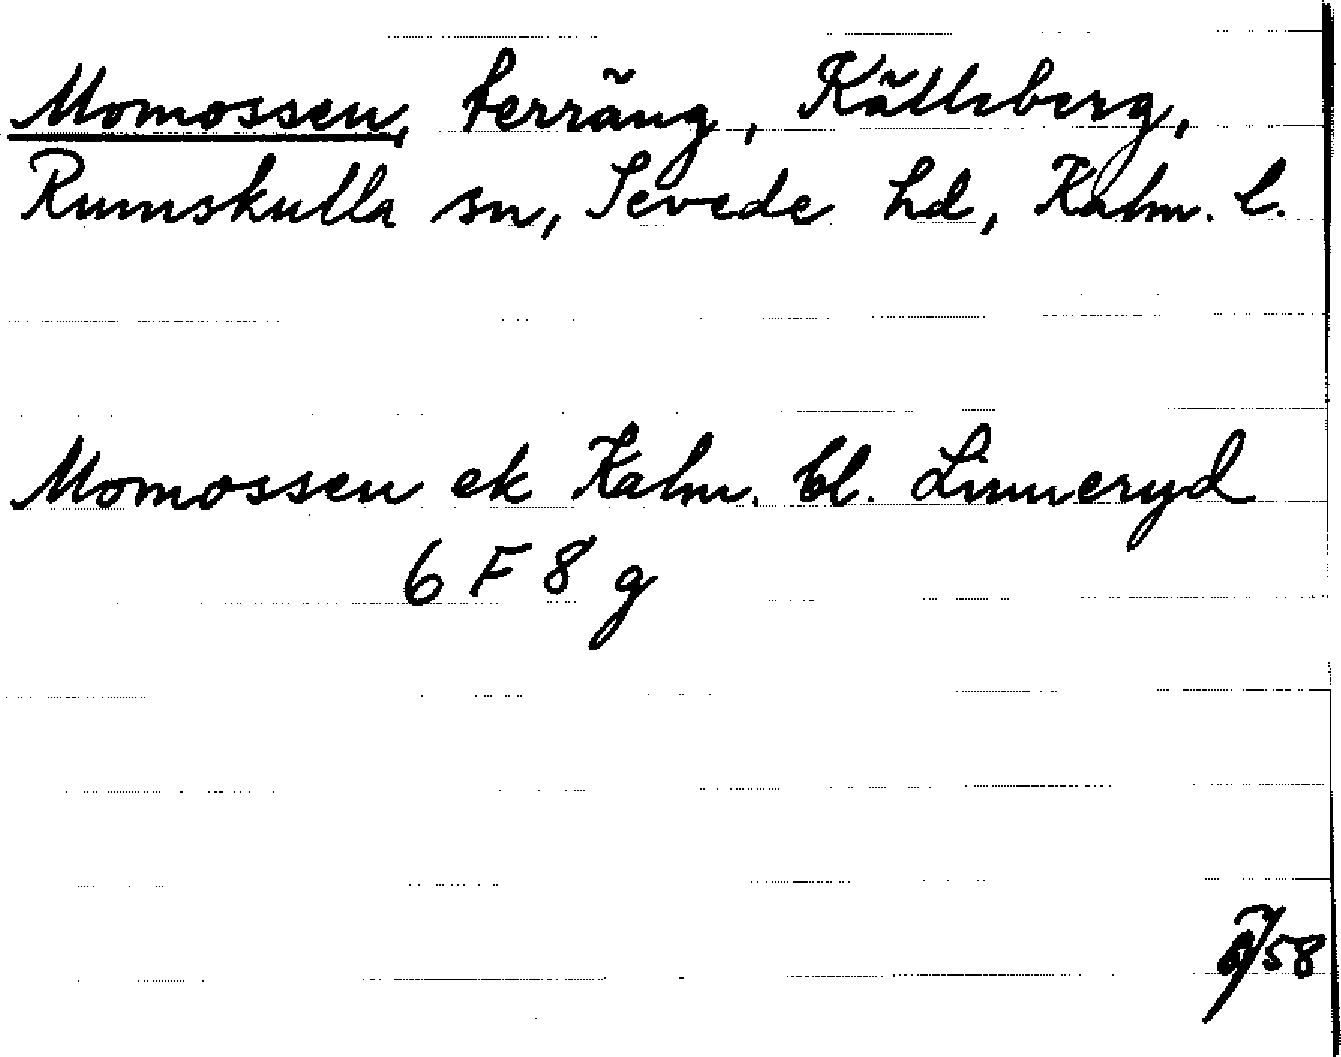 Momossen, terräng, Källeberg,
Rumskulla sn, Sevede hd, Kalm. l.
Momossen ek Kalm. bl. Linneryd
6 F 8 g
58